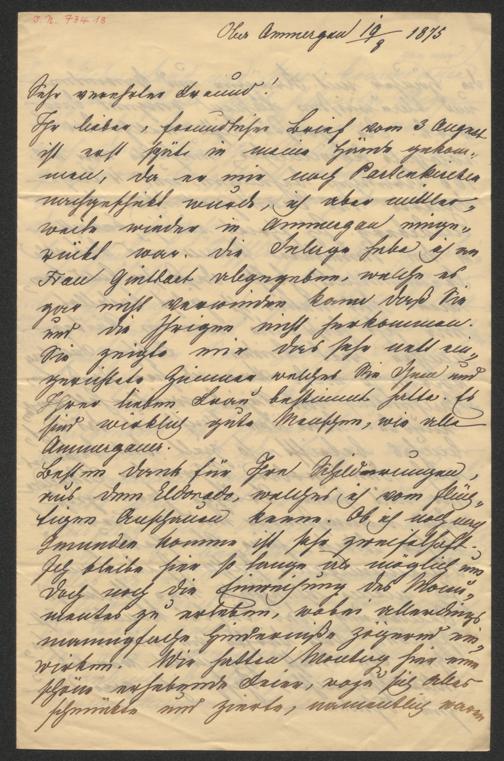 I. N. 734 18
Ober Ammergau 19/8 1875
Sehr verehrter Freund!
Ihr lieber, freundlicher Brief vom 3 August
ist erst spät in meine Hände gekom-
men, da er mir nach Partenkirchen
nachgeschickt wurde, ich aber mittler-
weile wieder in Ammergau einge-
rückt war. Die Inlage habe ich an
Frau abgegeben, welche es
gar nicht verwinden kann daß Sie
und die Ihrigen nicht herkommen.
Sie zeigte mir das sehr nett ein-
gerichtete Zimmer welches Sie Ihnen und
Ihrer lieben Frau bestimmt hatte. Es
sind wirklich gute Menschen, wie alle
Ammergauer.
Besten Dank für Ihre Schilderungen
aus dem Eldorado, welches ich vom flüch-
tigen Anschauen kenne. Ob ich noch nach
Gmunden komme ist sehr zweifelhaft.
Ich bleibe hier so lange als möglich um
doch noch die Einweihung des Monu-
mentes zu erleben, wobei allerdings
mannigfache Hinderniße zögernd ein-
wirken. Wir hatten Montag hier eine
schöne erhebende Feier, wozu sich alles
schmückte und zierte, namentlich waren